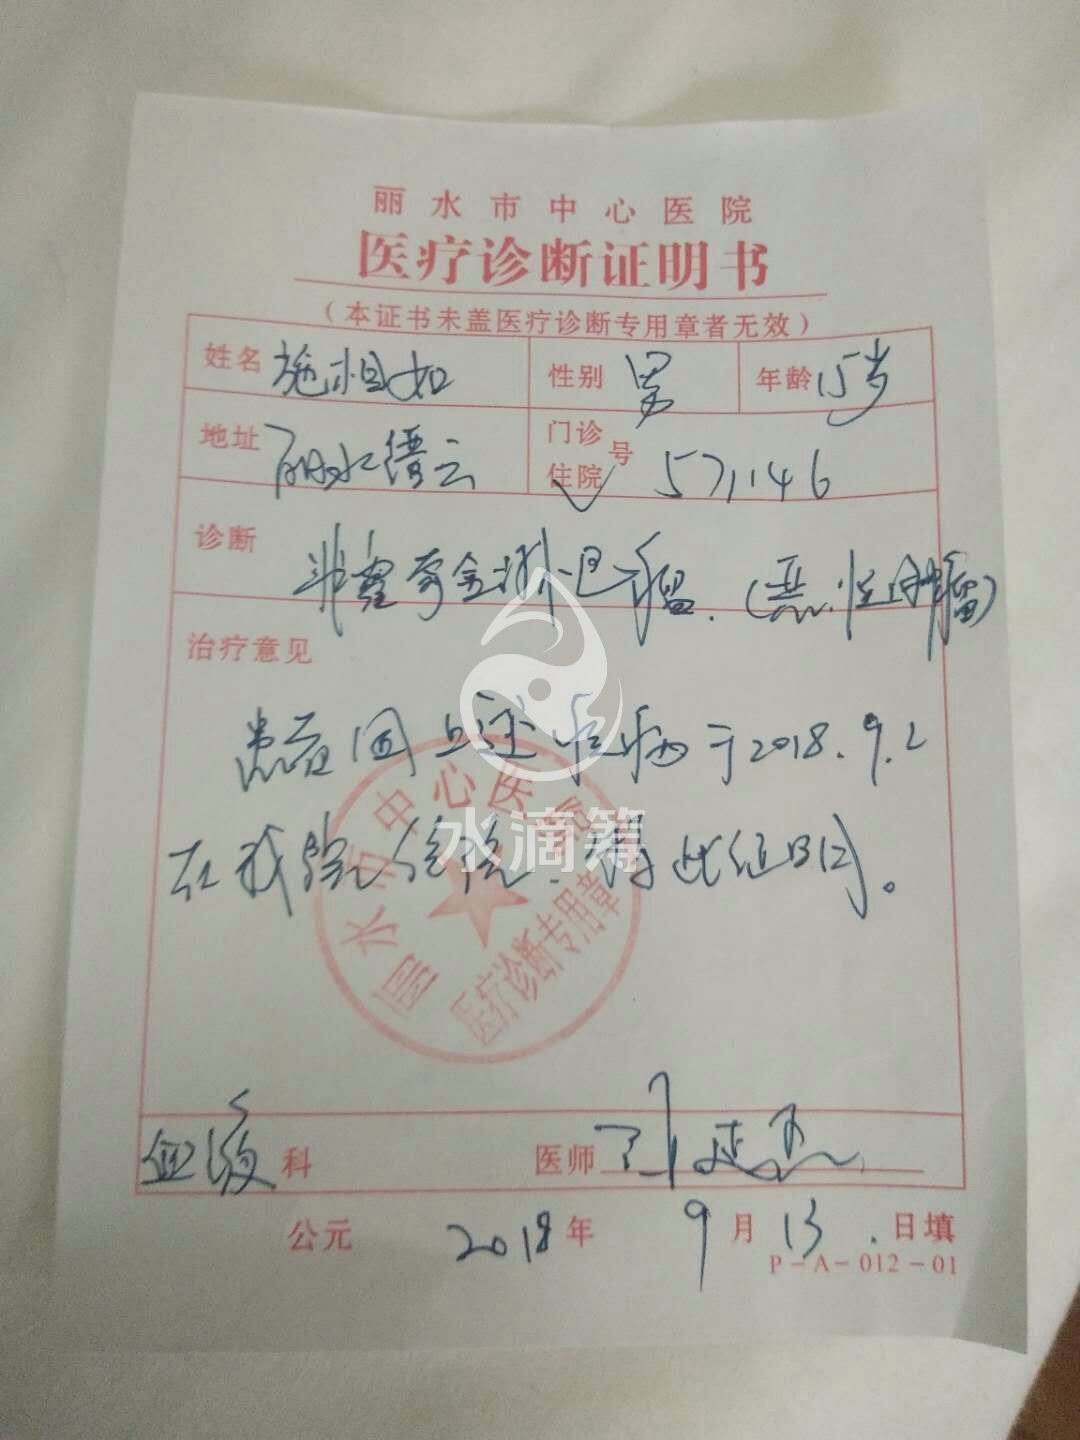 丽水市中心医院
医疗诊断证明书
（本证书未盖医疗诊断专用章者无效）
姓名 施相如 性别 男 年龄 15岁
地址 丽水缙云 门诊 住院 号 571146
诊断 非霍奇金淋巴瘤.（恶性肿瘤）
治疗意见
患者因上述疾病于2018.9.2
在我院住院.特此证明。
水滴筹
丽水市中心医院
医疗诊断专用章
血液科 医师
公元 2018年 9月 13日填
P-A-012-01